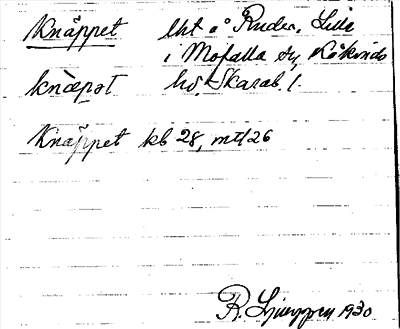 Knäppet lht å Ruder, Lilla
i Mofalla sn, Kåkinds
knæpət hd, Skarab. l.
Knäppet kb 28, mtl 26
R. Ljunggren 1930